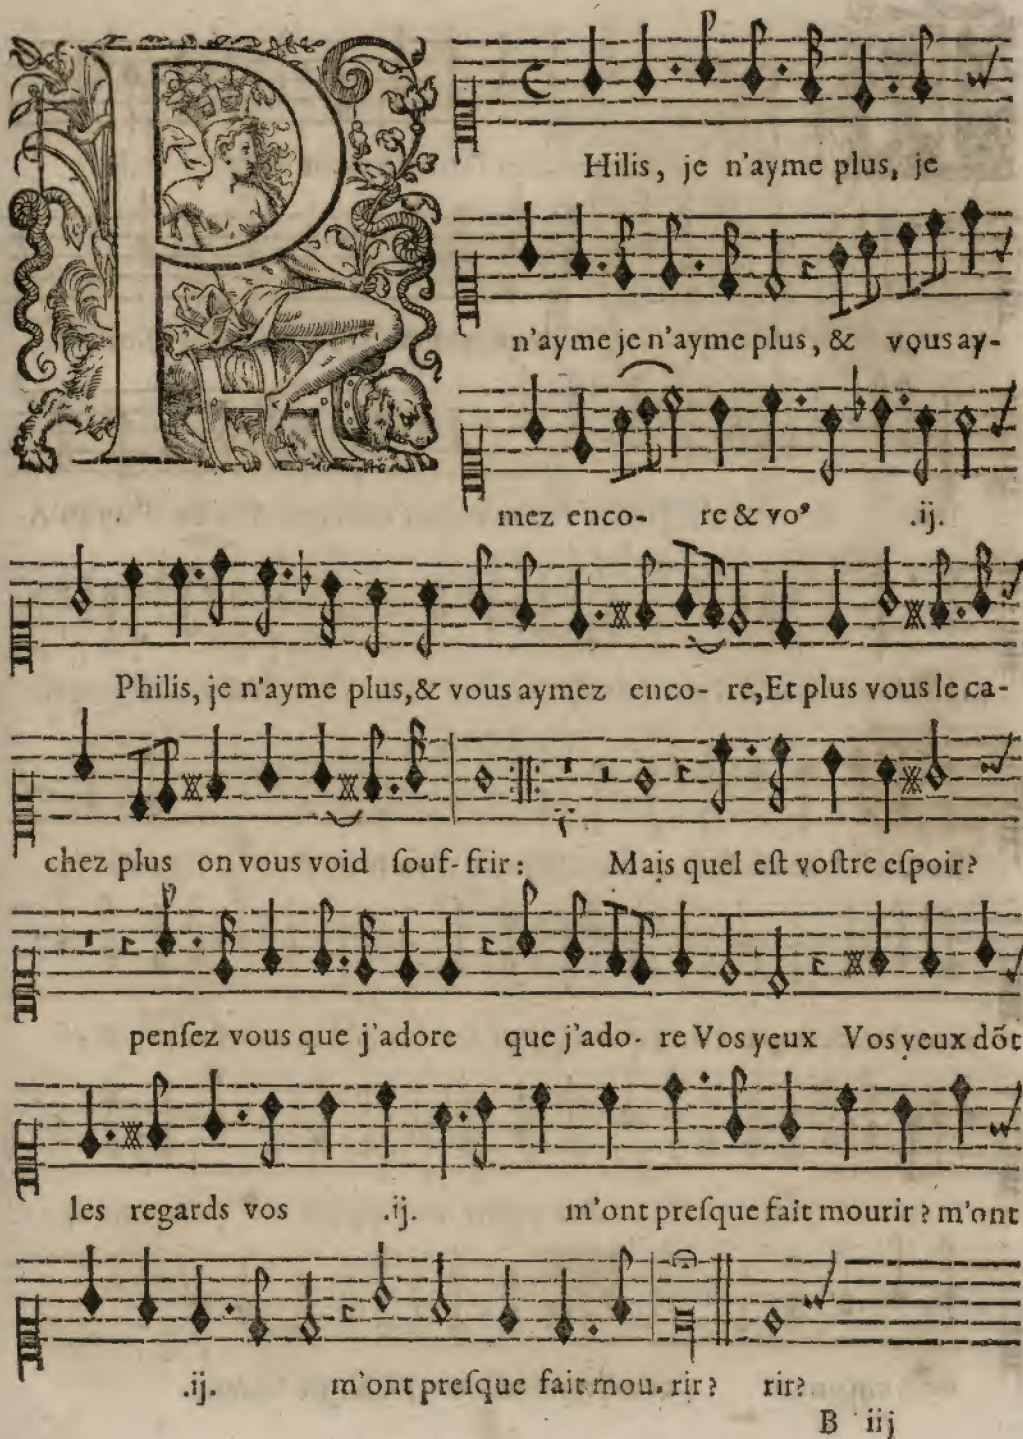 P
Hilis, je n'ayme plus, je
n'ayme je n'ayme plus, & vous ay-
mez enco- re & vo' .ij.
Philis, je n'ayme plus,& vous aymez enco- re,Et plus vous le ca-
chez plus on vous void ſouf-frir: Mais quel eſt voſtre eſpoir?
penſez vous que j'adore que j'ado- re Vos yeux Vos yeux dõt
les regards vos .ij. m'ont preſque fait mourir ? m'ont
.ij. m'ont preſque fait mou- rir ? rir?
B iij